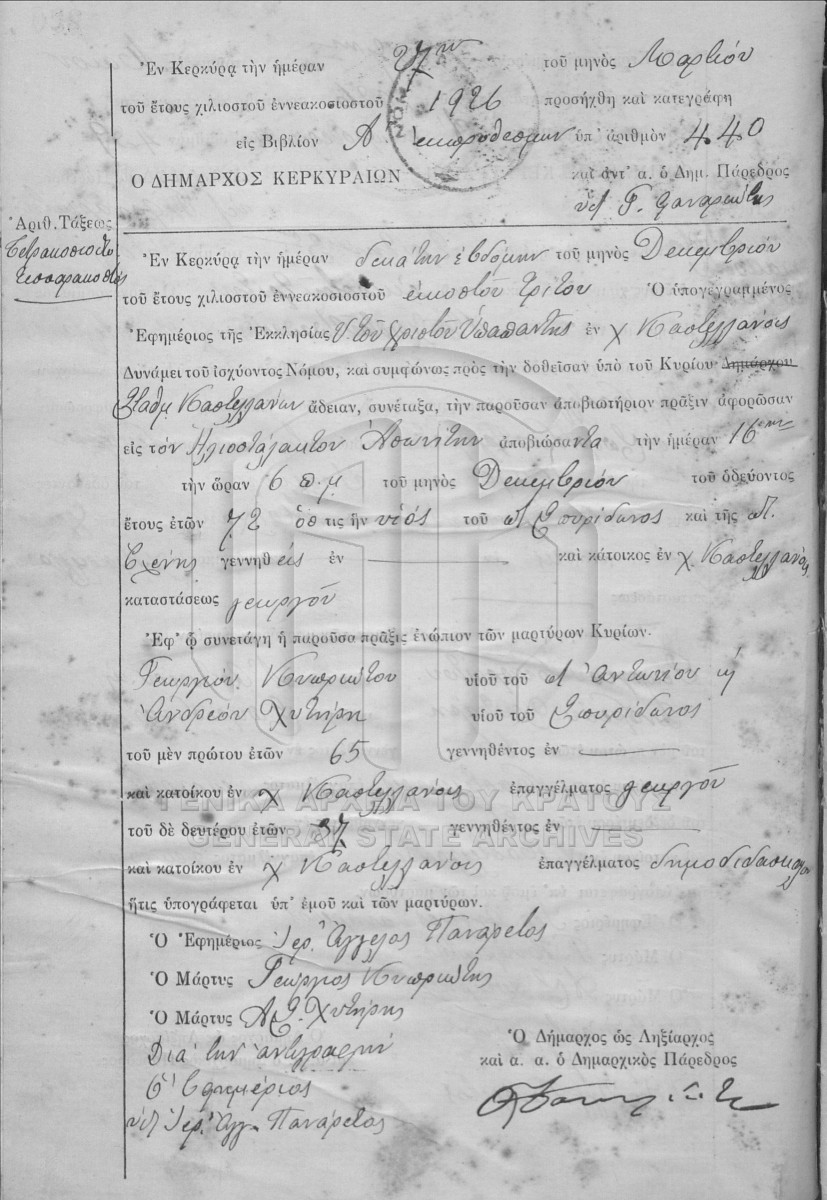 Ἐν Κερκύρᾳ τὴν ἡμέραν 27ην τοῦ μηνὸς Μαρτίου
τοῦ ἔτους χιλιοστοῦ ἐννεακοσιοστοῦ 1926 προσήχθη καὶ κατεγράφη
εἰς Βιβλίον Α ἐκπροθέσμων ὑπ' ἀριθμὸν 440
Ο ΔΗΜΑΡΧΟΣ ΚΕΡΚΥΡΑΙΩΝ καὶ ἀντ' α. ὁ Δημ. Πάρεδρος
Γ.
Ἀριθ. Τάξεως
Τετρακοσιοστὸ
τεσσαρακοστὸς
Ἐν Κερκύρᾳ τὴν ἡμέραν δεκάτην ἑβδόμην τοῦ μηνὸς Δεκεμβρίου
τοῦ ἔτους χιλιοστοῦ ἐννεακοσιοστοῦ εἰκοστοῦ τρίτου Ὁ ὑπογεγραμμένος
Ἐφημέριος τῆς Ἐκκλησίας Υ. τοῦ Χριστοῦ Ὑπαπαντῆς ἐν χ Καστελλάνοις
Δυνάμει τοῦ ἰσχύοντος Νόμου, καὶ συμφώνως πρὸς τὴν δοθεῖσαν ὑπὸ τοῦ Κυρίου Δημάρχου
Σταθμ Καστελλάνων ἄδειαν, συνέταξα, τὴν παροῦσαν ἀποβιωτήριον πρᾶξιν ἀφορῶσαν
εἰς τὸν Ἡλιοστάλακτον Ἀσωνίτην ἀποβιώσαντα τὴν ἡμέραν 16ην
τὴν ὥραν 6 π.μ τοῦ μηνὸς Δεκεμβρίου τοῦ ὁδεύοντος
ἔτους ἐτῶν 72 ὅστις ἦν υἱός τοῦ π. Σπυρίδωνος καὶ τῆς π.
Ἑλένης γεννηθείς ἐν καὶ κάτοικος ἐν χ. Καστελλάνοις
καταστάσεως γεωργοῦ
Ἐφ' ᾧ συνετάγη ἡ παροῦσα πρᾶξις ἐνώπιον τῶν μαρτύρων Κυρίων.
Γεωργίου Κυπριώτου υἱοῦ τοῦ π Ἀντωνίου κ
Ἀνδρέου Χυτήρη υἱοῦ τοῦ Σπυρίδωνος
τοῦ μὲν πρώτου ἐτῶν 65 γεννηθέντος ἐν
καὶ κατοίκου ἐν χ Καστελλάνοις ἐπαγγέλματος γεωργοῦ
ΓΕΝΙΚΑ ΑΡΧΕΙΑ ΤΟΥ ΚΡΑΤΟΥΣ
τοῦ δὲ δευτέρου ἐτῶν 37 γεννηθέντος ἐν
GENERAL STATE ARCHIVES
καὶ κατοίκου ἐν χ Καστελλάνοις ἐπαγγέλματος δημοδιδασκάλου
ἥτις ὑπογράφεται ὑπ' ἐμοῦ καὶ τῶν μαρτύρων.
Ὁ Ἐφημέριος Ἱερ. Ἄγγελος Πανάρετος
Ὁ Μάρτυς Γεώργιος Κυπριώτης
Ὁ Μάρτυς Α. Σ. Χυτήρης
Διὰ τὴν ἀντιγραφὴν
Ὁ Ἐφημέριος
Ἱερ. Ἀγγ. Πανάρετος
Ὁ Δήμαρχος ὡς Ληξίαρχος
καὶ α. α. ὁ Δημαρχικὸς Πάρεδρος